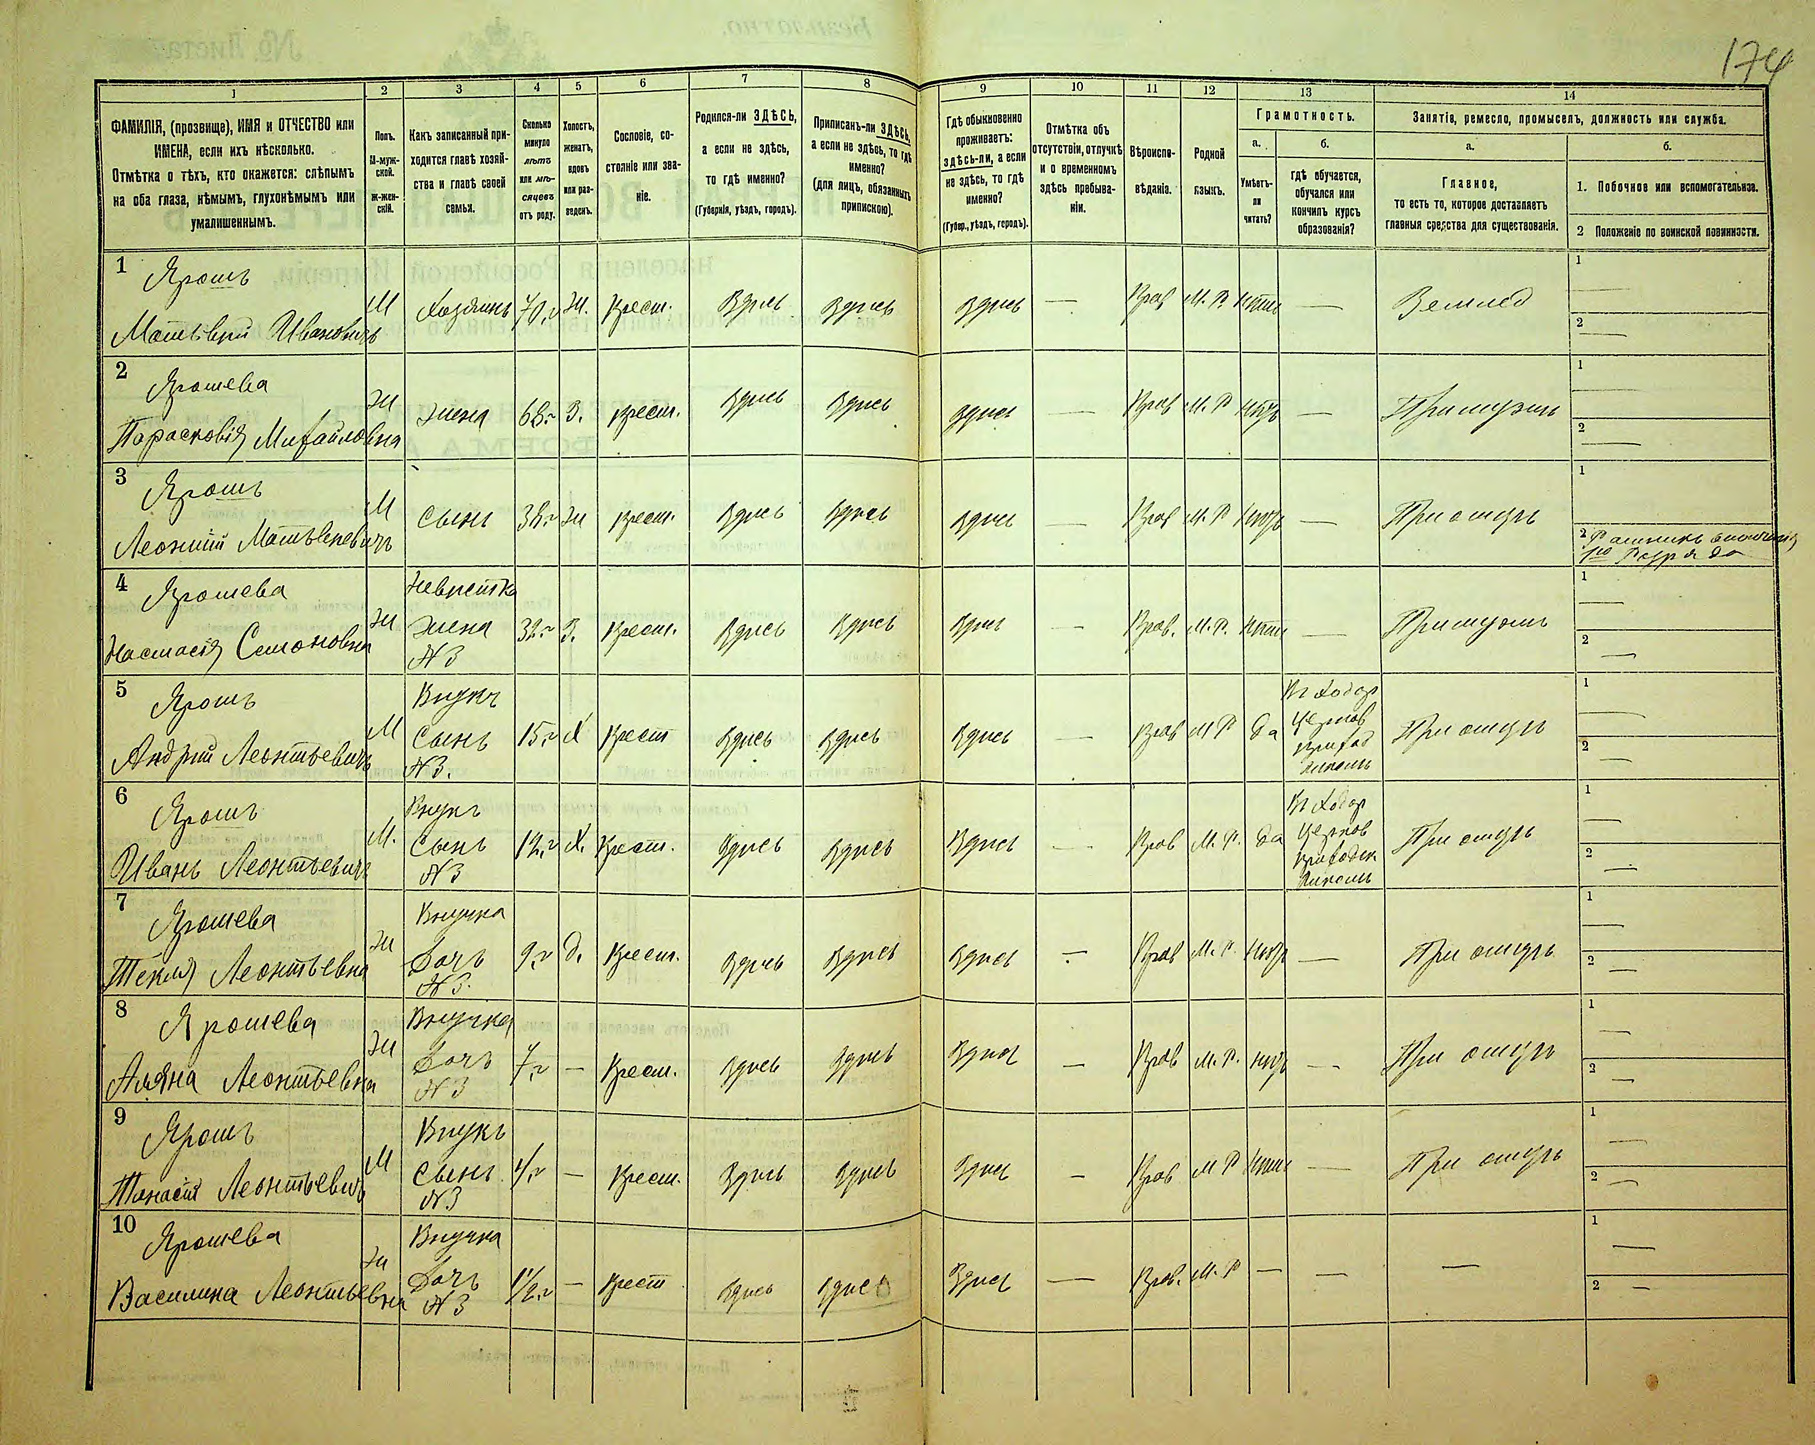 174
1
2
3
4
5
6
7
8
9
10
11
12
13
14
ФАМИЛІЯ, (прозвище), ИМЯ и ОТЧЕСТВО или
ИМЕНА, если ихъ нѣсколько.
Отмѣтка о тѣхъ, кто окажется: слѣпымъ
на оба глаза, нѣмымъ, глухонѣмымъ или
умалишеннымъ.
Полъ.
М-муж-
ской.
Ж-жен-
скій.
Какъ записанный при-
ходится главѣ хозяй-
ства и главѣ своей
семьи.
Сколько
минуло
лѣтъ
или мѣ-
сяцевъ
отъ роду.
Холостъ,
женатъ,
вдовъ
или раз-
веденъ.
Сословіе, со-
стояніе или зва-
ніе.
Родился-ли ЗДѢСЬ,
а если не здѣсь,
то гдѣ именно?
(Губернія, уѣздъ, городъ).
Приписанъ-ли ЗДѢСЬ,
а если не здѣсь, то гдѣ
именно?
(для лицъ, обязанныхъ
припискою).
Гдѣ обыкновенно
проживаетъ:
здѣсь-ли, а если
не здѣсь, то гдѣ
именно?
(Губер., уѣздъ, городъ).
Отмѣтка объ
отсутствіи, отлучкѣ
и о временномъ
здѣсь пребыва-
ніи.
Вѣроиспо-
вѣданіе.
Родной
языкъ.
Грамотность.
а.
Умѣетъ-
ли
читать?
б.
гдѣ обучается,
обучался или
кончилъ курсъ
образованія?
Занятіе, ремесло, промыселъ, должность или служба.
а.
Главное,
то есть то, которое доставляетъ
главныя средства для существованія.
б.
1. Побочное или вспомогательное.
2 Положеніе по воинской повинности.
1
Ярошъ
Матьвѣй Ивановичъ
М Хозяинъ 70.г Ж. Крест. Здись Здись Здись — Прав М.Р. — Землед
1
2
2
Ярошева
Парасковія Михайловна
Ж жена 68.г З. Крест. Здись Здись Здись — Прав М.Р — При мужи
1
2
3
Ярошъ
Леонтій Матьвеевичъ
М сынъ 38.г Ж Крест. Здись Здись Здись — Прав М.Р — При отцъ
1
2
4
Ярошева
Настасія Семоновна
Ж Невистка
жена
№3
32.г З. Крест. Здись Здись Здись — Прав. М.Р. — При мужи
1
2
5
Ярошъ
Андрій Леонтьевичъ
М Внукъ
сынъ
№3.
15.г Х Крест Здись Здись Здись — Прав М Р да
При отцъ
1
2
6
Ярошъ
Иванъ Леонтьевичъ
М. Внукъ
сынъ
№3
12.г Х. Крест. Здись Здись Здись — Прав М.Р. да
При отцъ
1
2
7
Ярошева
Текля Леонтьевна
Ж Внучка
дочъ
№3.
9.г д. Крест. Здись Здись Здись — Прав М.Р. — При отцъ
1
2
8
Ярошева
Леонтьевна
Ж Внучка
дочъ
№3
7.г — Крест. Здись Здись Здись — Прав М.Р. — При отцъ
1
2
9
Ярошъ
Танасій Леонтьевичъ
М Внукъ
сынъ
№3
4.г — Крест. Здись Здись Здись — Прав М Р — При отцъ
1
2
10
Ярошева
Василина Леонтьевна
Ж Внучка
дочъ
№3
1½.г — Крест Здись Здись Здись — Прав. М.Р — — —
1
2